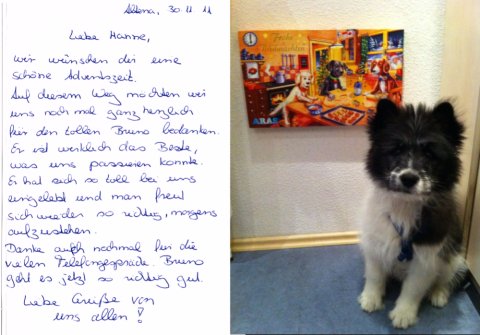 Altena, 30.11.11
Liebe Hanne,
wir wünschen dir eine
schöne Adventszeit.
Auf diesem Weg möchten wir
uns noch mal ganz herzlich
für den tollen Bruno bedanken.
Er ist wirklich das Beste,
was uns passieren konnte.
Er hat sich so toll bei uns
eingelebt und man freut
sich wieder so richtig, morgens
aufzustehen.
Danke auch nochmal für die
vielen Telefongespräche. Bruno
geht es jetzt so richtig gut.
Liebe Grüße von
uns allen!
Frohe
Weihnachten
ARAS